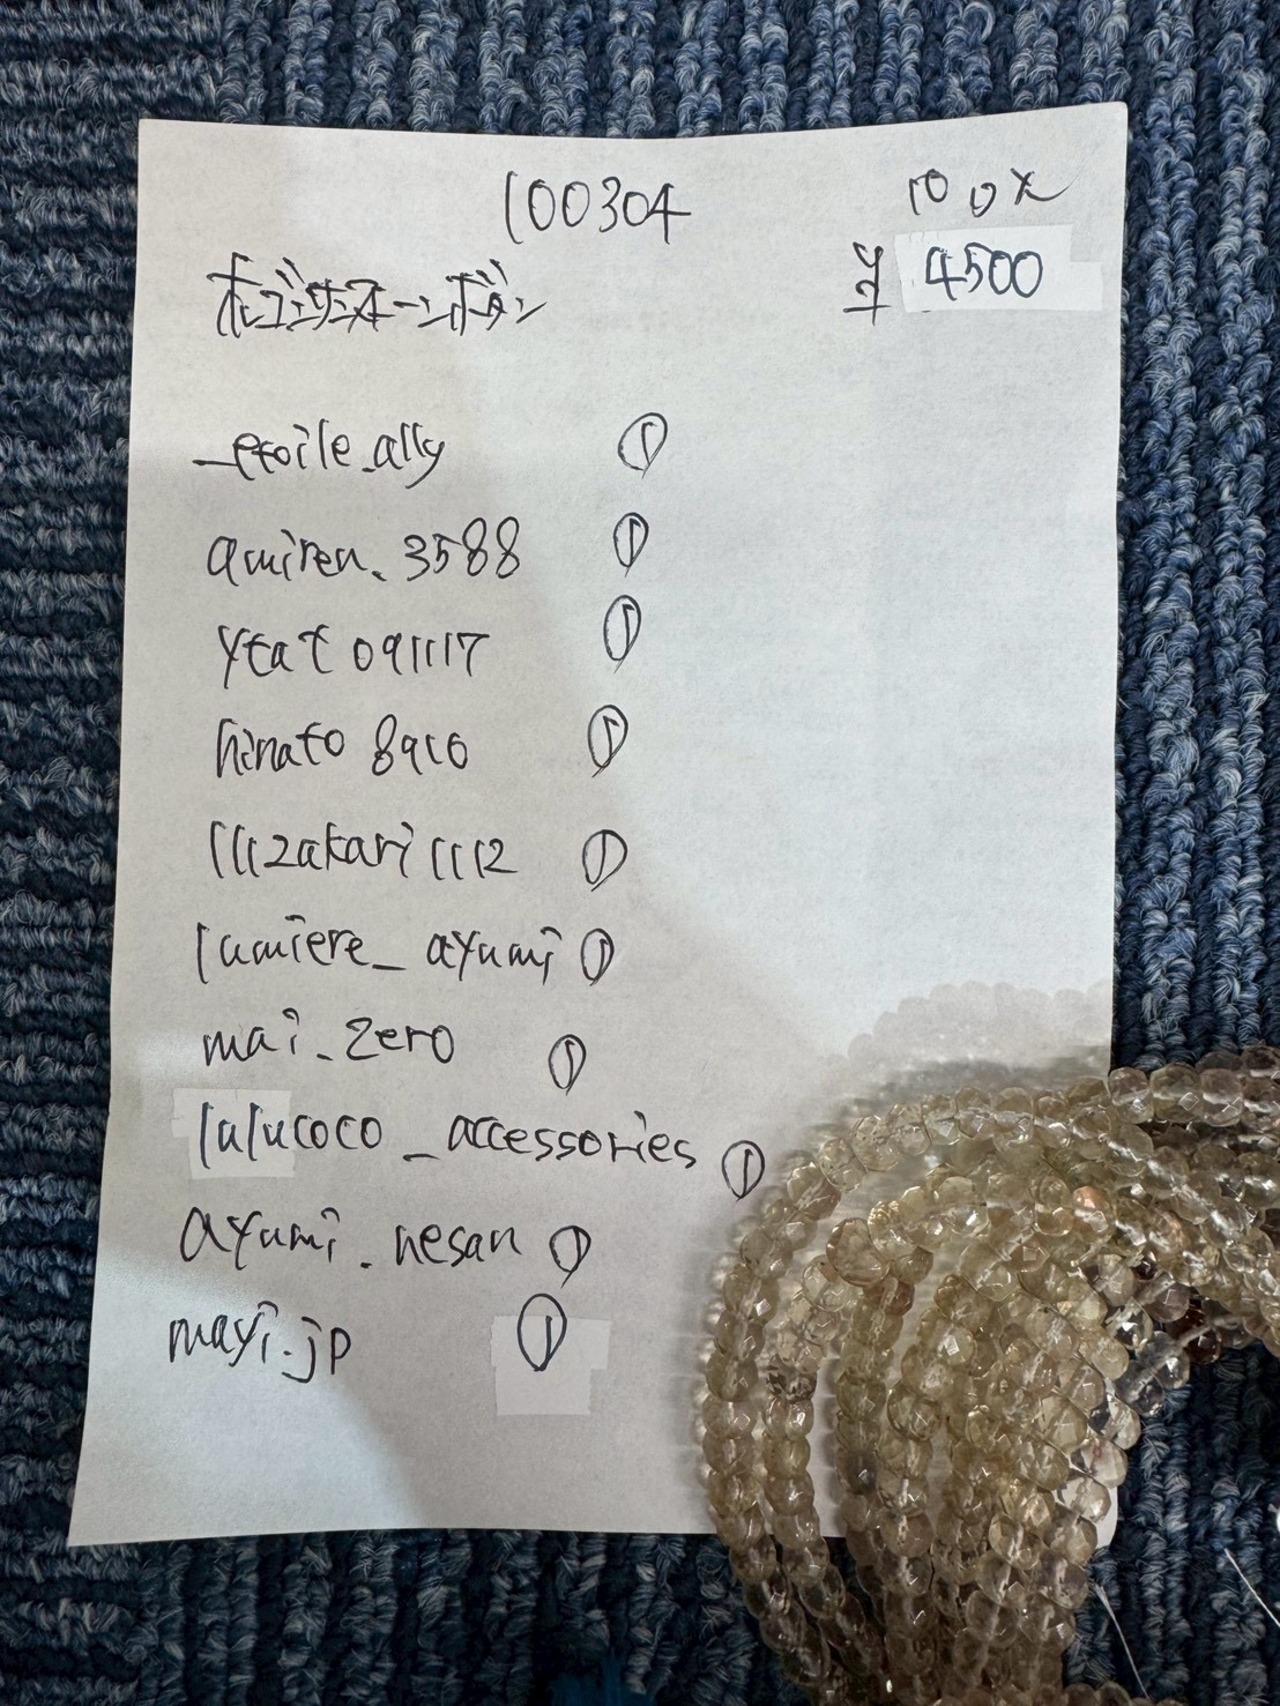 100304
100x
¥ 4500
_etoile_ally ①
amiren.3588 ①
ytat091117 ①
hinato8910 ①
1112akari1112 ①
lumiere_ayumi ①
mai_zero ①
lulucoco_accessories ①
ayumi.nesan ①
mayi.jp ①